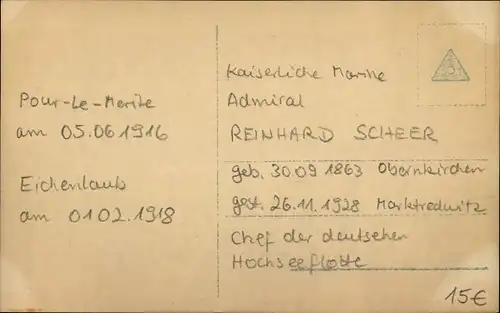 Pour-Le-Merite
am 05.06.1916
Eichenlaub
am 01.02.1918
Kaiserliche Marine
Admiral
REINHARD SCHEER
geb. 30.09 1863 Obernkirchen
gest. 26.11.1928 Marktredwitz
Chef der deutschen
Hochseeflotte
15€